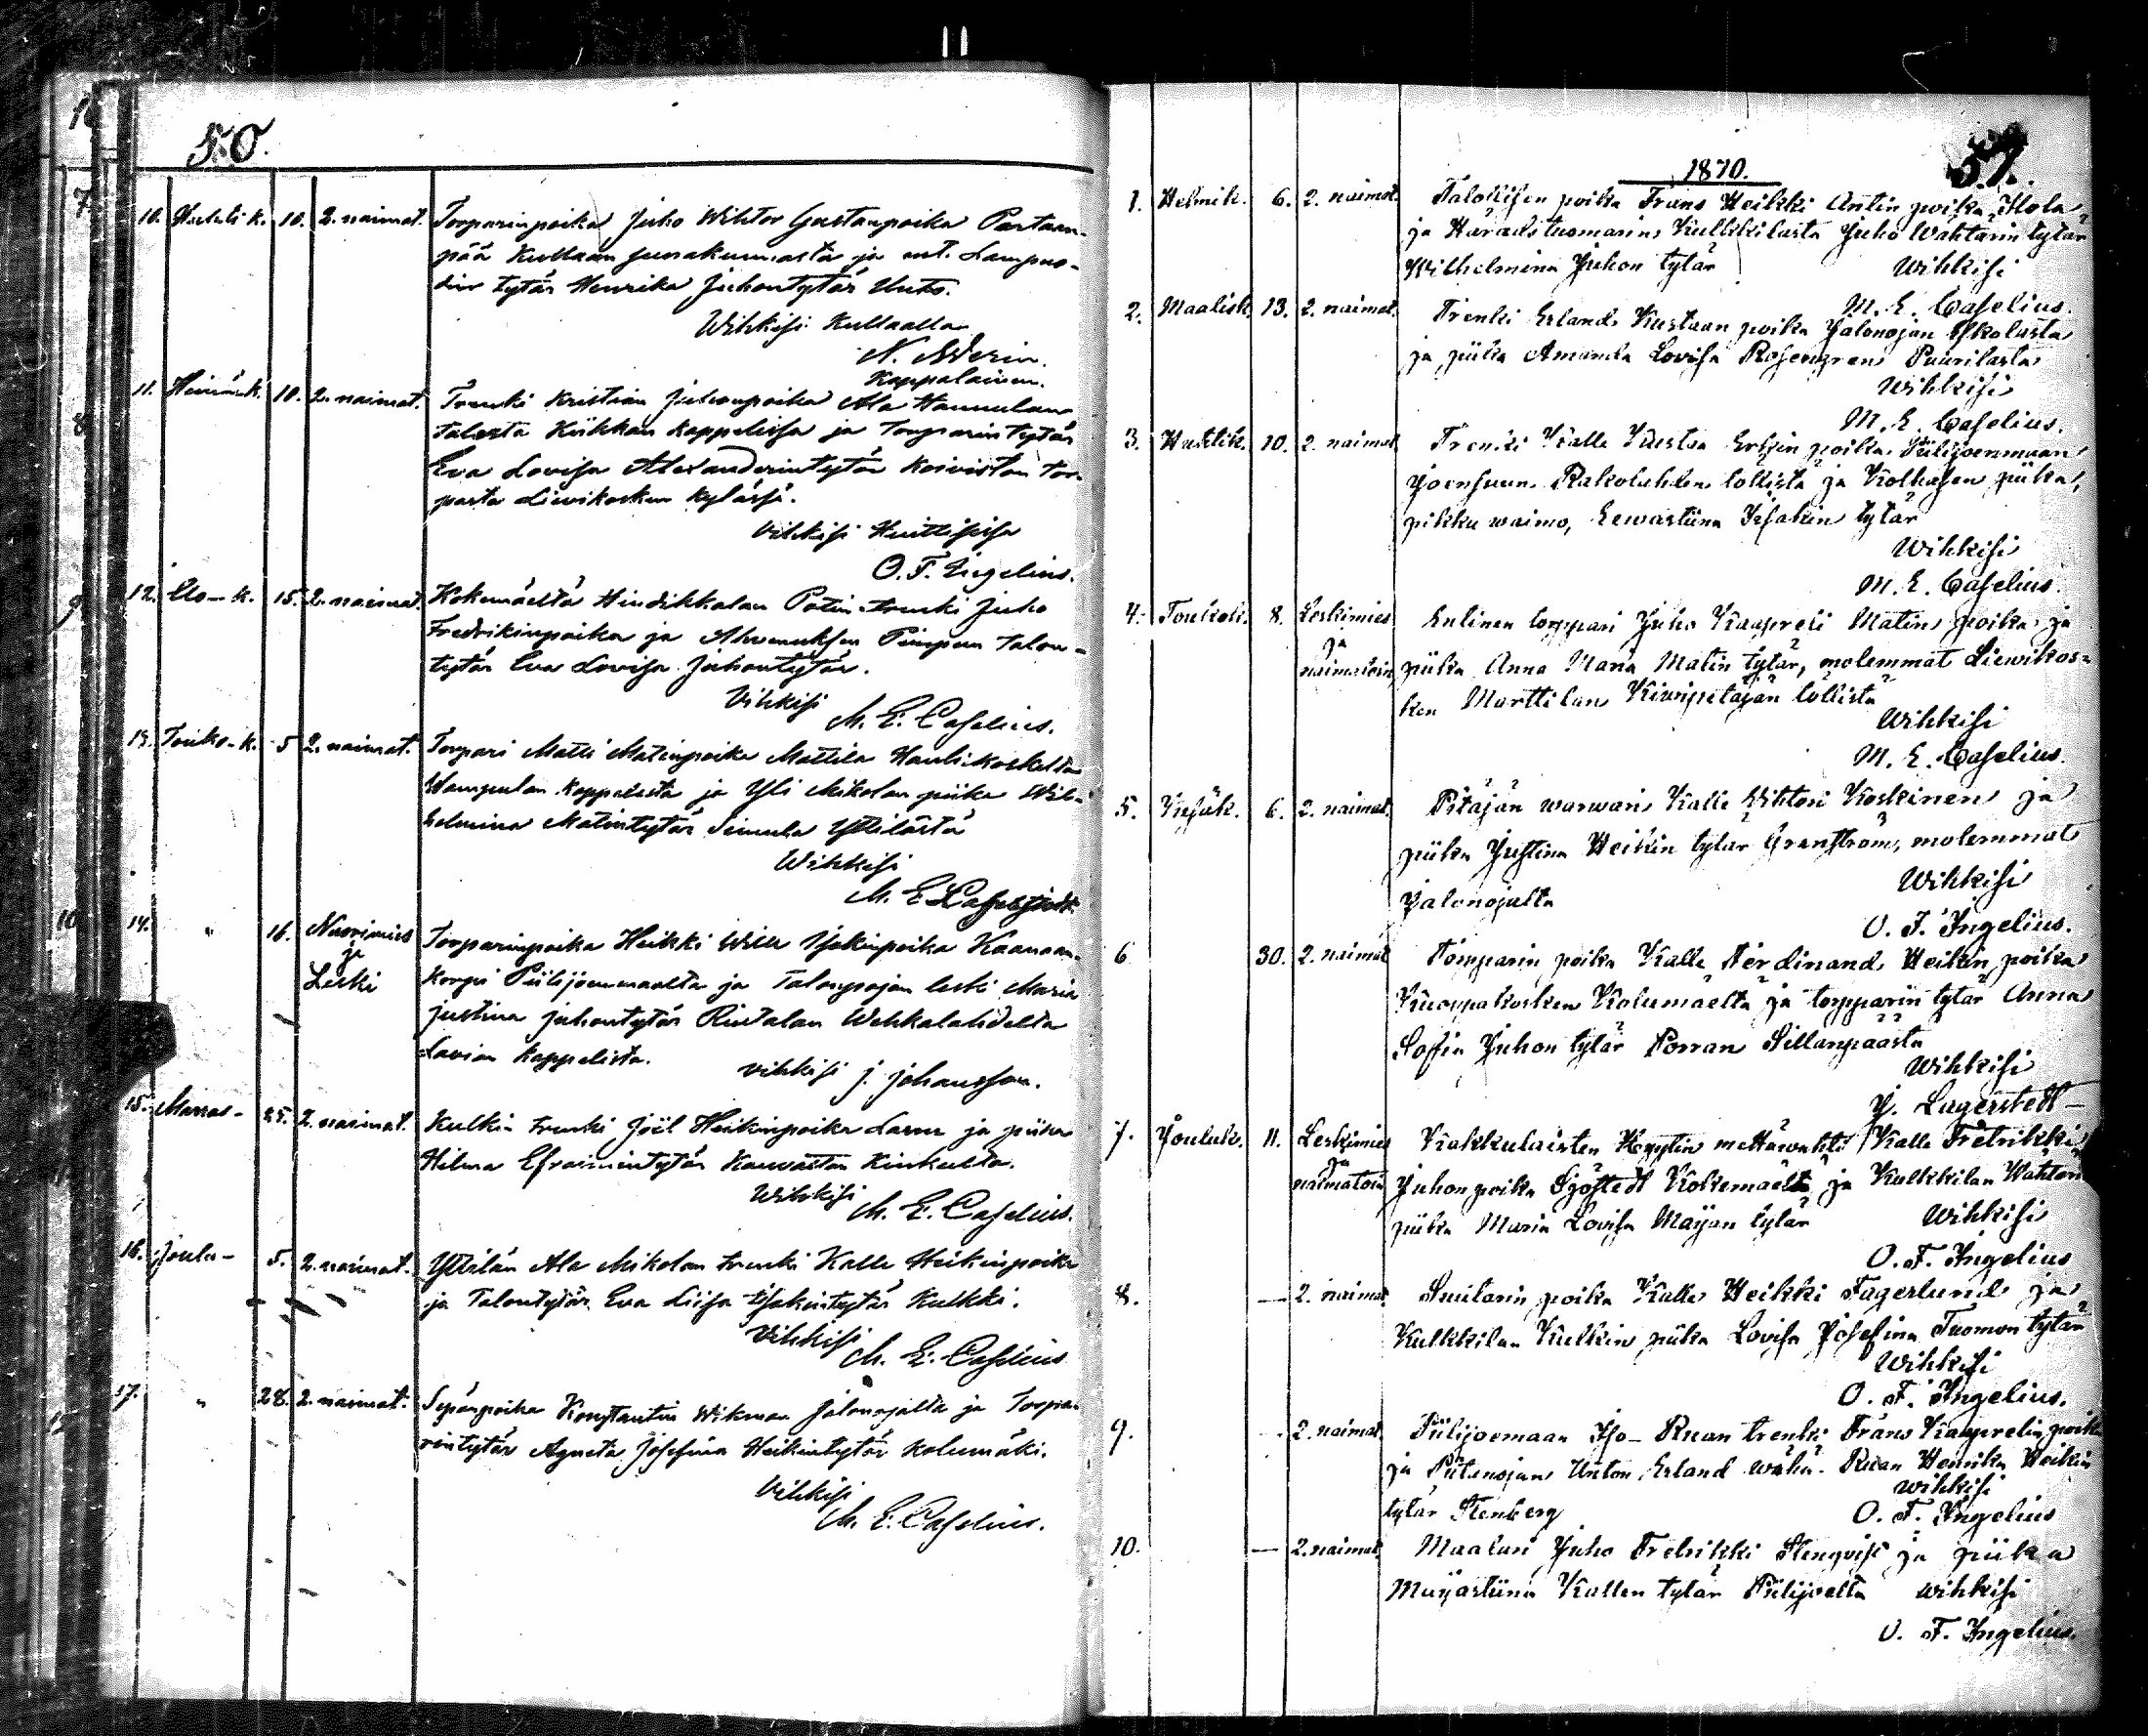 50.
10. Huhti k. 10. 2. naimat. Torparinpoika Juho Wihtor Gustaanpoika Partaan-
pää Kullaan seurakunnasta ja
tytär Henrika Juhontytär
Wihkisi Kullaalla
N.
Kappalainen.
11. Heinäk. 10. 2. naimat. Trenki Kristian Juhonpoika Ala Hannulan
talosta Kiikkan kappelissa ja torparintytär
Eva Lovisa Alexanderintytär Koiviston tor-
pasta Liewikosken kylässä.
Vihkisi Huittisissa
O. F. Ingelius.
12. Elo-k. 15. 2. naimat. Kokemäeltä Hindikkalan trenki Juho
Fredrikinpoika ja Pimpun talon-
tytär Eva Lovisa Juhontytär.
Vihkisi
M. E. Caselius.
13. Touko-k. 5 2. naimat. Torpari Matti Matinpoika Mattila
Wampulan kappelista ja Yli Mikolan piika Wil-
helmina Matintytär Simula Yttilästä
Wihkisi
M. E.
14. " 16. Nuorimies
ja
Leski
Torparinpoika Heikki Wille Isakinpoika Kaanaan-
korpi Piilijoenmaalta ja Talonpojan leski Maria
Justina Juhontytär Rintalan
Lavian kappelista.
vihkisi J. Johansson.
15. Marras- 25. 2. naimat. Kulki trenki Joel Heikinpoika ja piika
Hilma Efraimintytär
Wihkisi
M. E. Caselius.
16. Joulu- 5. 2. naimat. Yttilän Ala Mikolan trenki Kalle Heikinpoika
ja Talontytär Eva Liisa Isakintytär Kulkki.
Vihkisi
M. E. Caselius
17. " 28. 2. naimat. Sepänpoika Konstantin Wikman Jalonojalta ja Torpa-
rintytär Agneta Josefina Heikintytär Kolumäki.
Vihkisi
M. E. Caselius.
57.
1870.
1. Helmik. 6. 2. naimat. Talollisen poika Frans Heikki Antin poika Ilola
ja Häradstuomarin Kulkkilasta Juho Wahtarin tytär
Wilhelmina Juhon tytär Wihkisi
M. E. Caselius.
2. Maalisk. 13. 2. naimat. Trenki Erland Kustaan poika Jalonojan
ja piika Amanda Lovisa Rosengren Puurilasta
Wihkisi
M. E. Caselius.
3. Huhtik. 10. 2. naimat. Trenki Kalle Kustaa poika Piilijoenmaan
Joensuun lollista ja Kolhasen piika,
pikku waimo, Eewastiina Isakin tytär
Wihkisi
M. E. Caselius.
4. Toukok. 8. Leskimies
ja
naimatoin
Entinen torppari Juho Kaapreli Matin poika ja
piika Anna Maria Matin tytär, molemmat Liewikos-
ken Marttilan Kivipetäjän lollista
Wihkisi
M. E. Caselius.
5. Kesäk. 6. 2. naimat. Pitäjän warwari Kalle Wihtori Koskinen ja
piika Justina Heikin tytär Granström, molemmat
Jalonojalta Wihkisi
O. F. Ingelius.
6 30. 2. naimat. Torpparin poika Kalle Ferdinand Heikin poika
Kuoppakosken Kolumaelta ja torpparin tytär Anna
Sofia Juhon tytär Porran Sillanpäästä
Wihkisi
J. Lagerstedt
7. Jouluk. 11. Leskimies
ja
naimatoin
Kakkulaisten mettäwahti Kalle Fretrikki
Juhon poika Sjöstedt Kokemäeltä ja Kulkkilan Wahtari
piika Maria Lovisa Maijan tytär Wihkisi
O. F. Ingelius
8. — 2. naimat. Suutarin poika Kalle Heikki Fagerlund ja
Kulkkilan Kulkin piika Lovisa Josefina Tuomon tytär
Wihkisi
O. F. Ingelius.
9. — 2. naimat. Piilijoemaan Iso-Ruan trenki Frans Kaaprelin poika
ja Unton Erland wähä-Ruan Henrika Heikin
wihkisi
tytär Stenberg O. F. Ingelius
10. — 2. naimat. Maalari Juho Fretrikki Stenqvist ja piika
Maijastiina Kallen tytär Piilijoelta wihkisi
O. F. Ingelius.